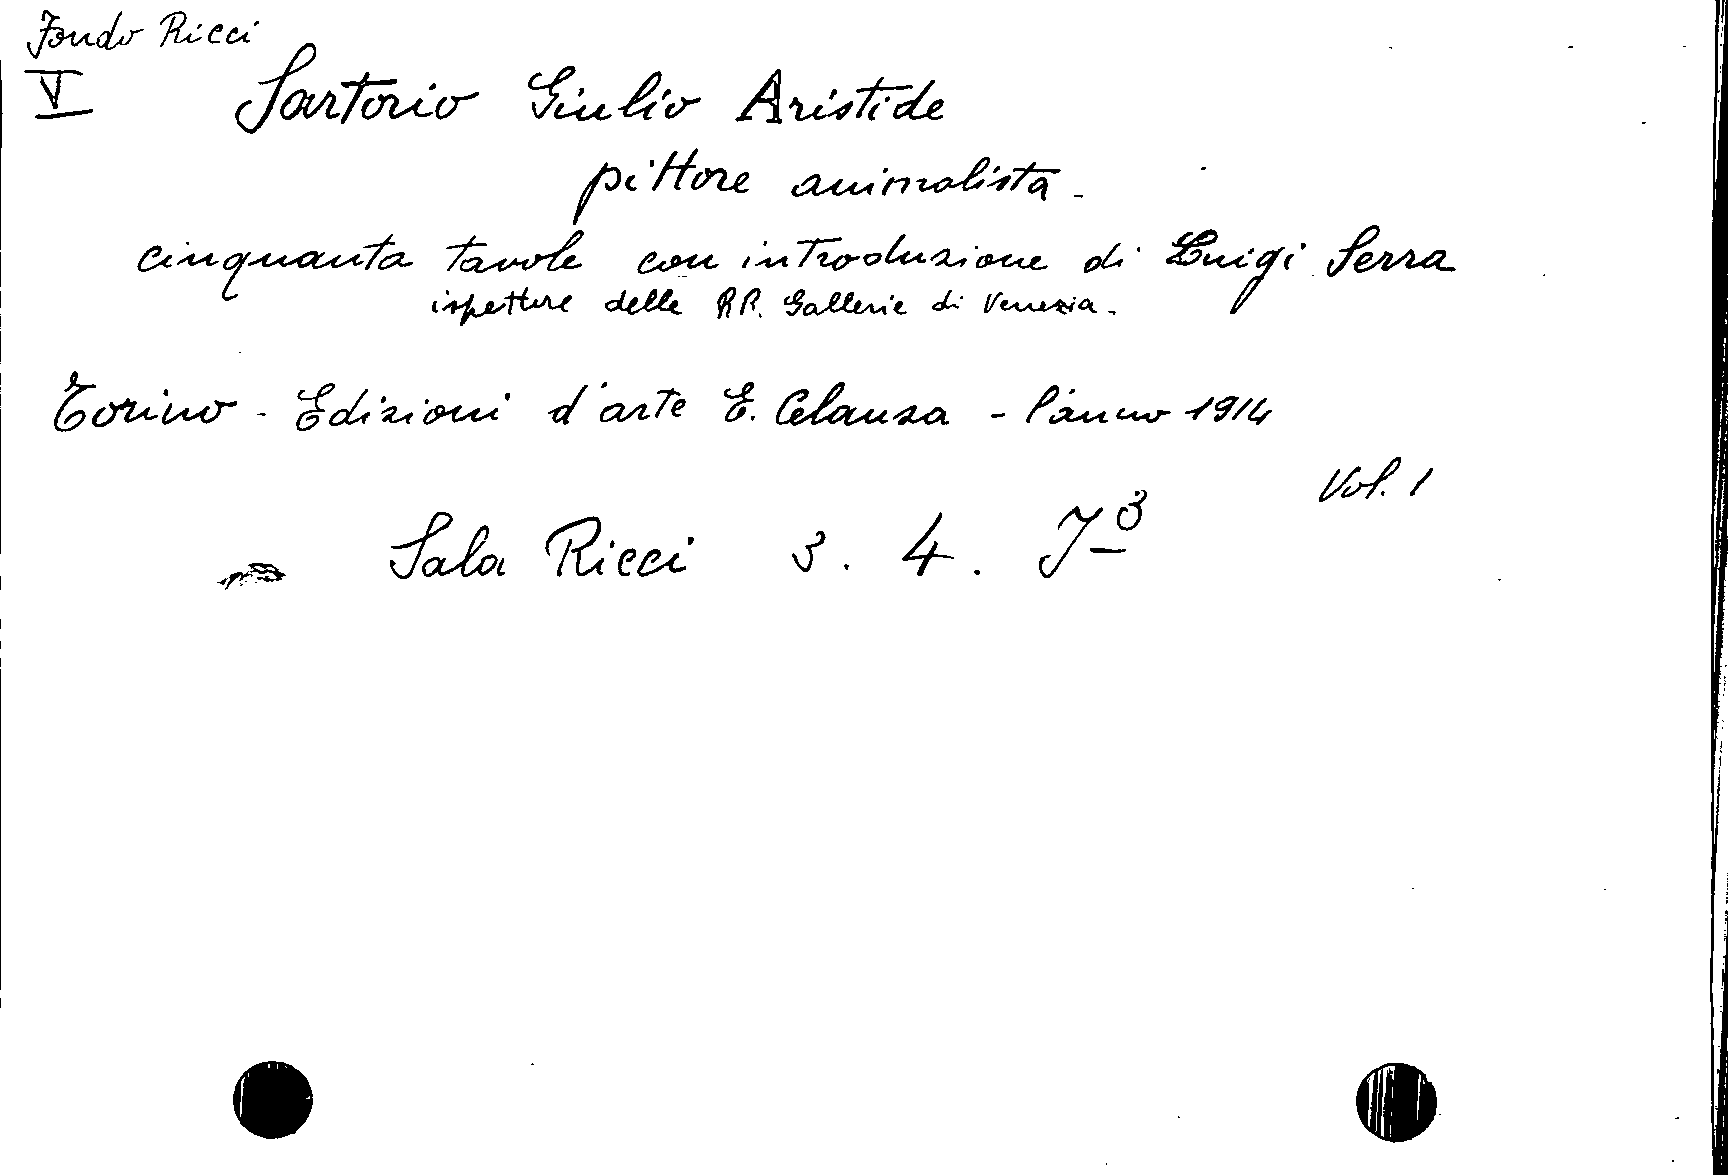 Fondo Ricci
V
Sartorio Giulio Aristide
pittore animalista -
cinquanta tavole con introduzione di Luigi Serra
ispettore delle RR. Gallerie di Venezia.
Torino - Edizioni d'arte E. Celanza - l'anno 1914
Vol. 1
Sala Ricci 3. 4. J³